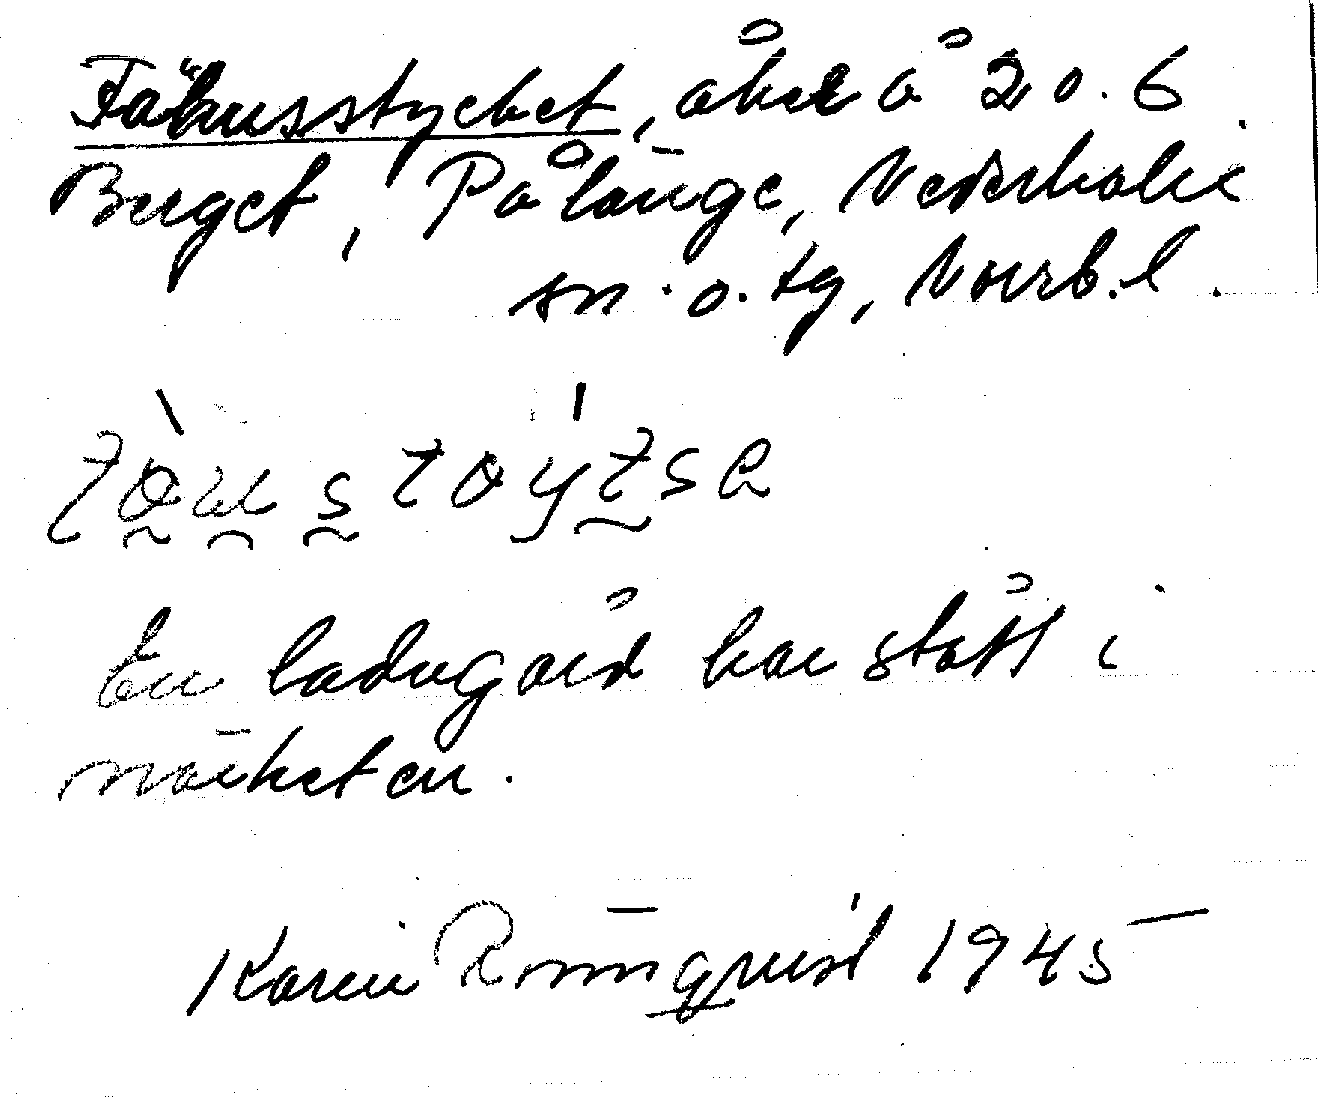 Fähusstycket, åker å 20.6.
Berget, Pålänge, Nederkalix
sn. o. tg, Norrb.l.
En ladugård har stått i
närheten.
Karin Rönnqvist 1945